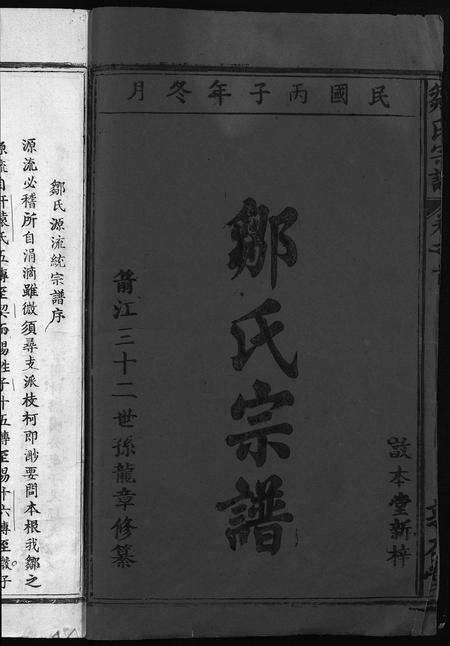 民國丙子年冬月
敦本堂新梓
鄒氏宗譜
箭江三十二世孫龍章修纂
鄒氏宗譜
鄒氏源流統宗譜序
源流必稽所自涓滴雖微須尋支派枝柯即渺要問本根我鄒之
軒轅氏五傳至契而賜姓子十五傳至湯十六傳至微子